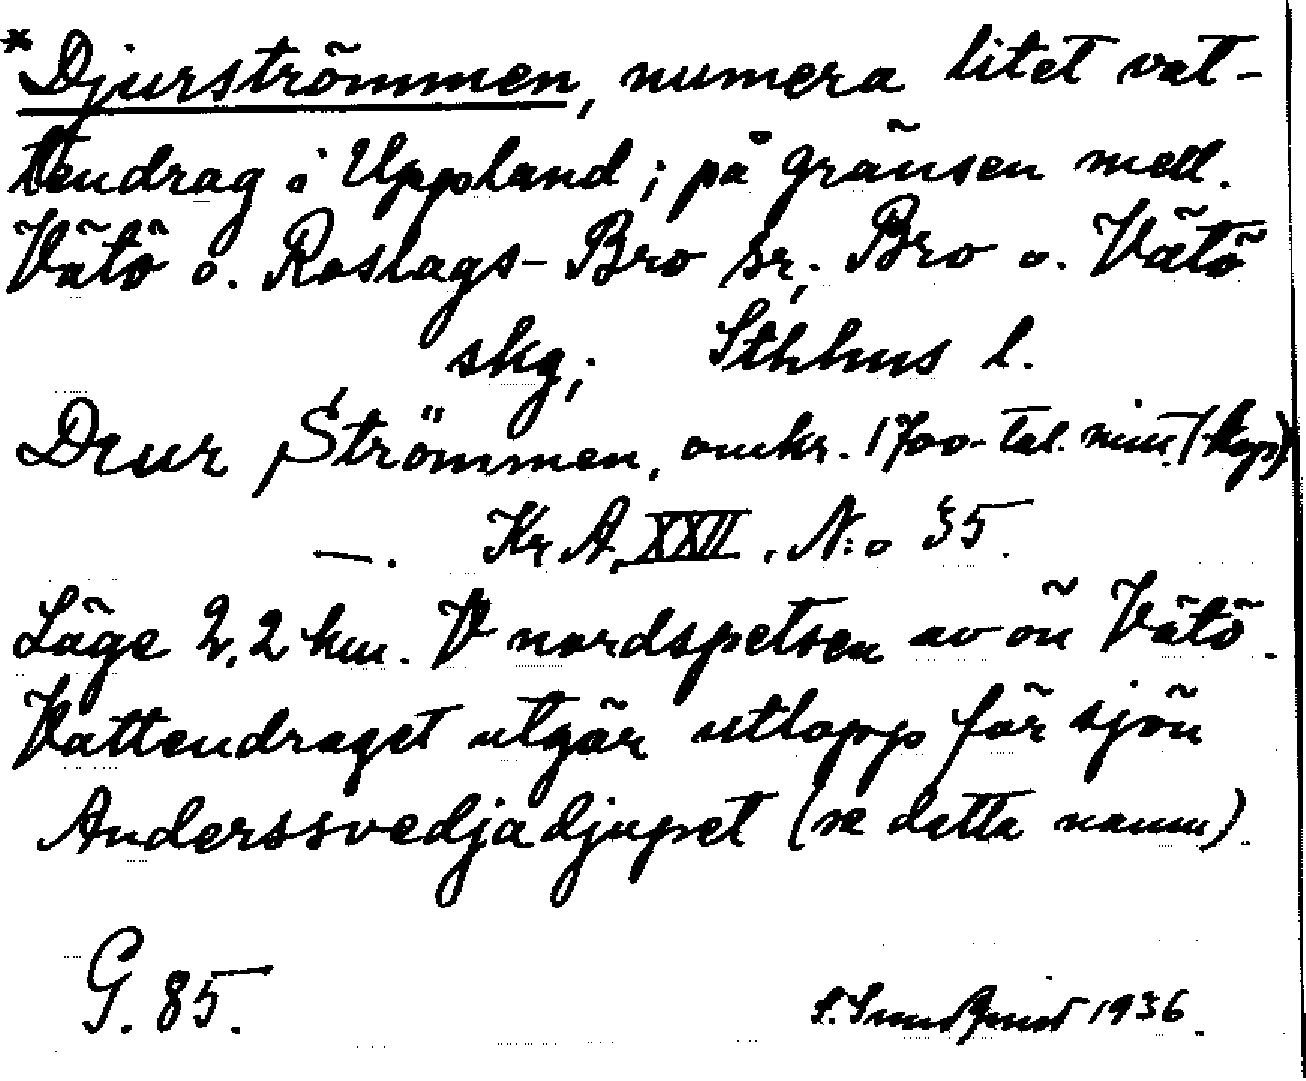 *Djurströmmen, numera litet vat-
tendrag i Uppland; på gränsen mell.
Vätö o. Roslags-Bro sr; Bro o. Vätö
skg; Sthlms l.
Diur Strömmen, omkr. 1700-tal. min. (kop)
—. Kr. A. XXII. N:o 35.
Läge 2,2 km. V nordspetsen av ön Vätö.
Vattendraget utgör utlopp för sjön
Anderssvedjadjupet (se detta namn).
G. 85. 1936.